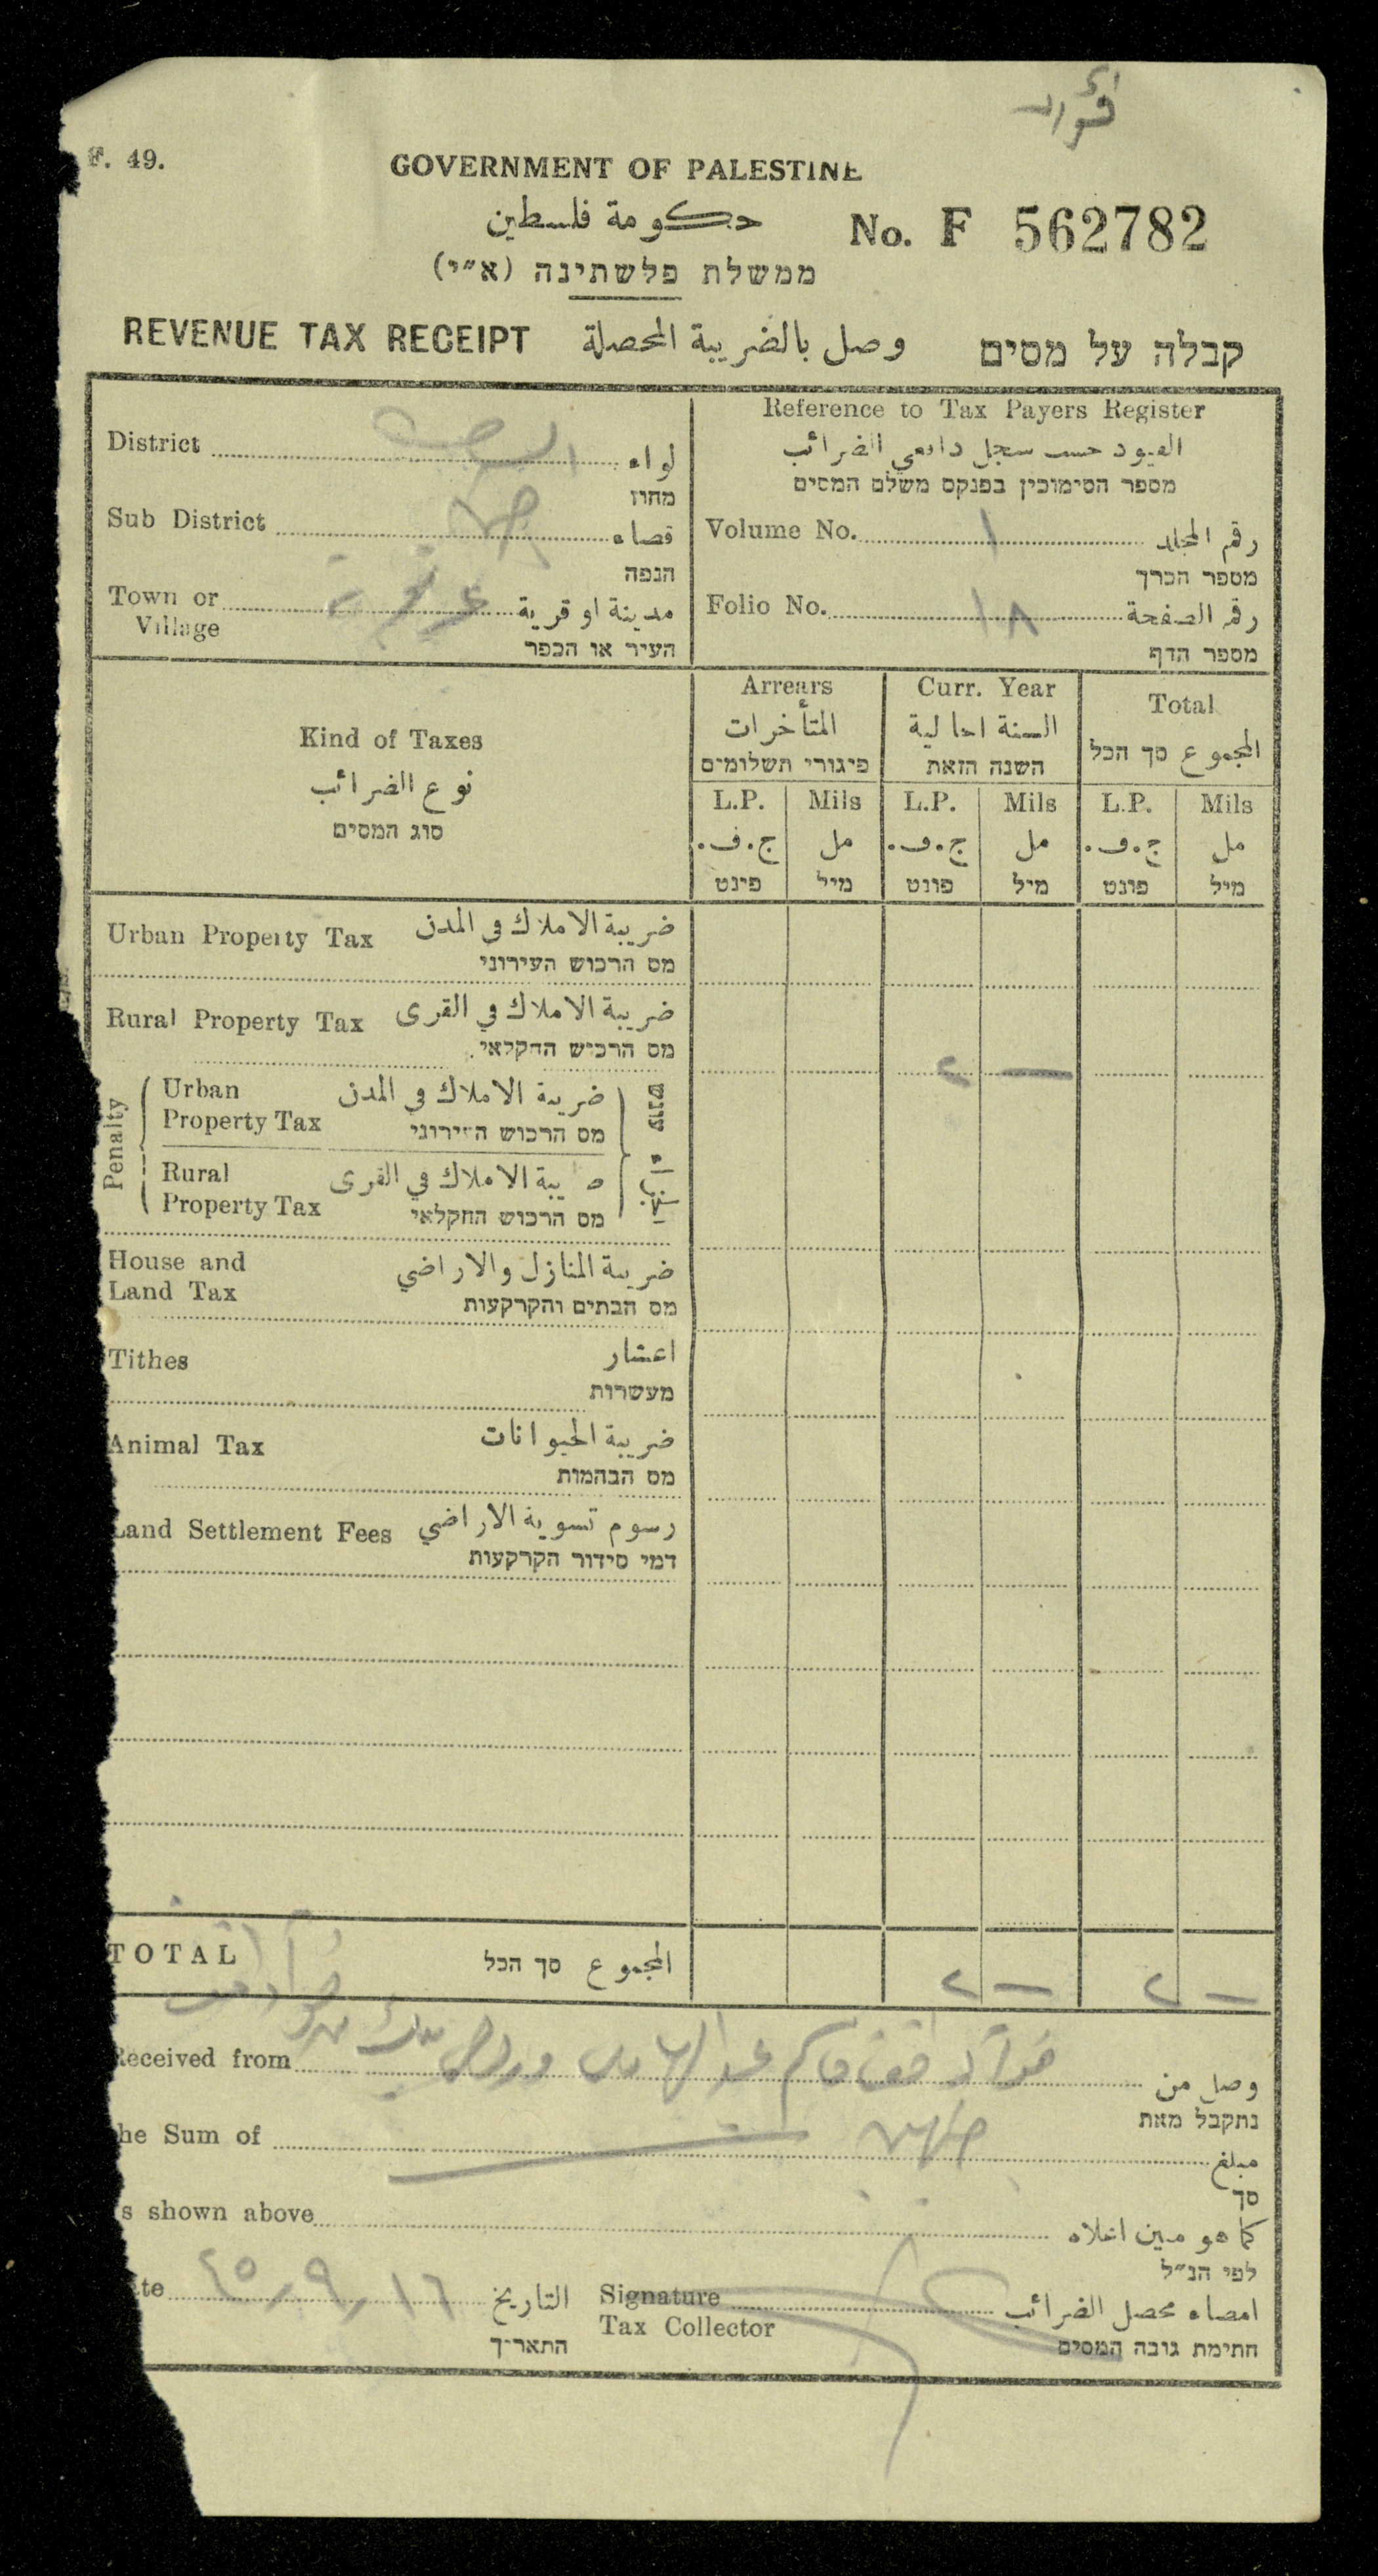 فؤاد
F. 49.
GOVERNMENT OF PALESTINE
حكومة فلسطين
No. F 562782
ממשלת פלשתינה (א״י)
REVENUE TAX RECEIPT وصل بالضريبة المحصلة קבלה על מסים
District لواء
מחוז
Sub District قضاء
הנפה
Town or Village مدينة او قرية
העיר או הכפר
Reference to Tax Payers Register
القيود حسب سجل دافعي الضرائب
מספר הסימוכין בפנקס משלם המסים
Volume No. ١ رقم المجلد
מספר הכרך
Folio No. ١٨ رقم الصفحة
מספר הדף
Kind of Taxes
نوع الضرائب
סוג המסים
Arrears Curr. Year Total
المتأخرات السنة الحالية المجموع סך הכל
פיגורי תשלומים השנה הזאת
L.P. Mils L.P. Mils L.P. Mils
ج.ف. مل ج.ف. مل ج.ف. مل
פינט מיל פונט מיל פונט מיל
Urban Property Tax ضريبة الاملاك في المدن
מס הרכוש העירוני
Rural Property Tax ضريبة الاملاك في القرى
מס הרכיש החקלאי. ٢ —
Penalty
Urban Property Tax ضريبة الاملاك في المدن
מס הרכוש העירוני
עונש
Rural Property Tax ضريبة الاملاك في القرى
מס הרכוש החקלאי
House and Land Tax ضريبة المنازل والاراضي
מס הבתים והקרקעות
Tithes اعشار
מעשרות
Animal Tax ضريبة الحيوانات
מס הבהמות
Land Settlement Fees رسوم تسوية الاراضي
דמי סידור הקרקעות
TOTAL المجموع סך הכל ٢ — ٢ —
Received from فؤاد وصل من
נתקבל מאת
he Sum of مبلغ
סך
s shown above كما هو مبين اعلاه
לפי הנ״ל
te ١٦ / ٩ / ٤٥ التاريخ
התאריך
Signature Tax Collector امضاء محصل الضرائب
חתימת גובה המסים